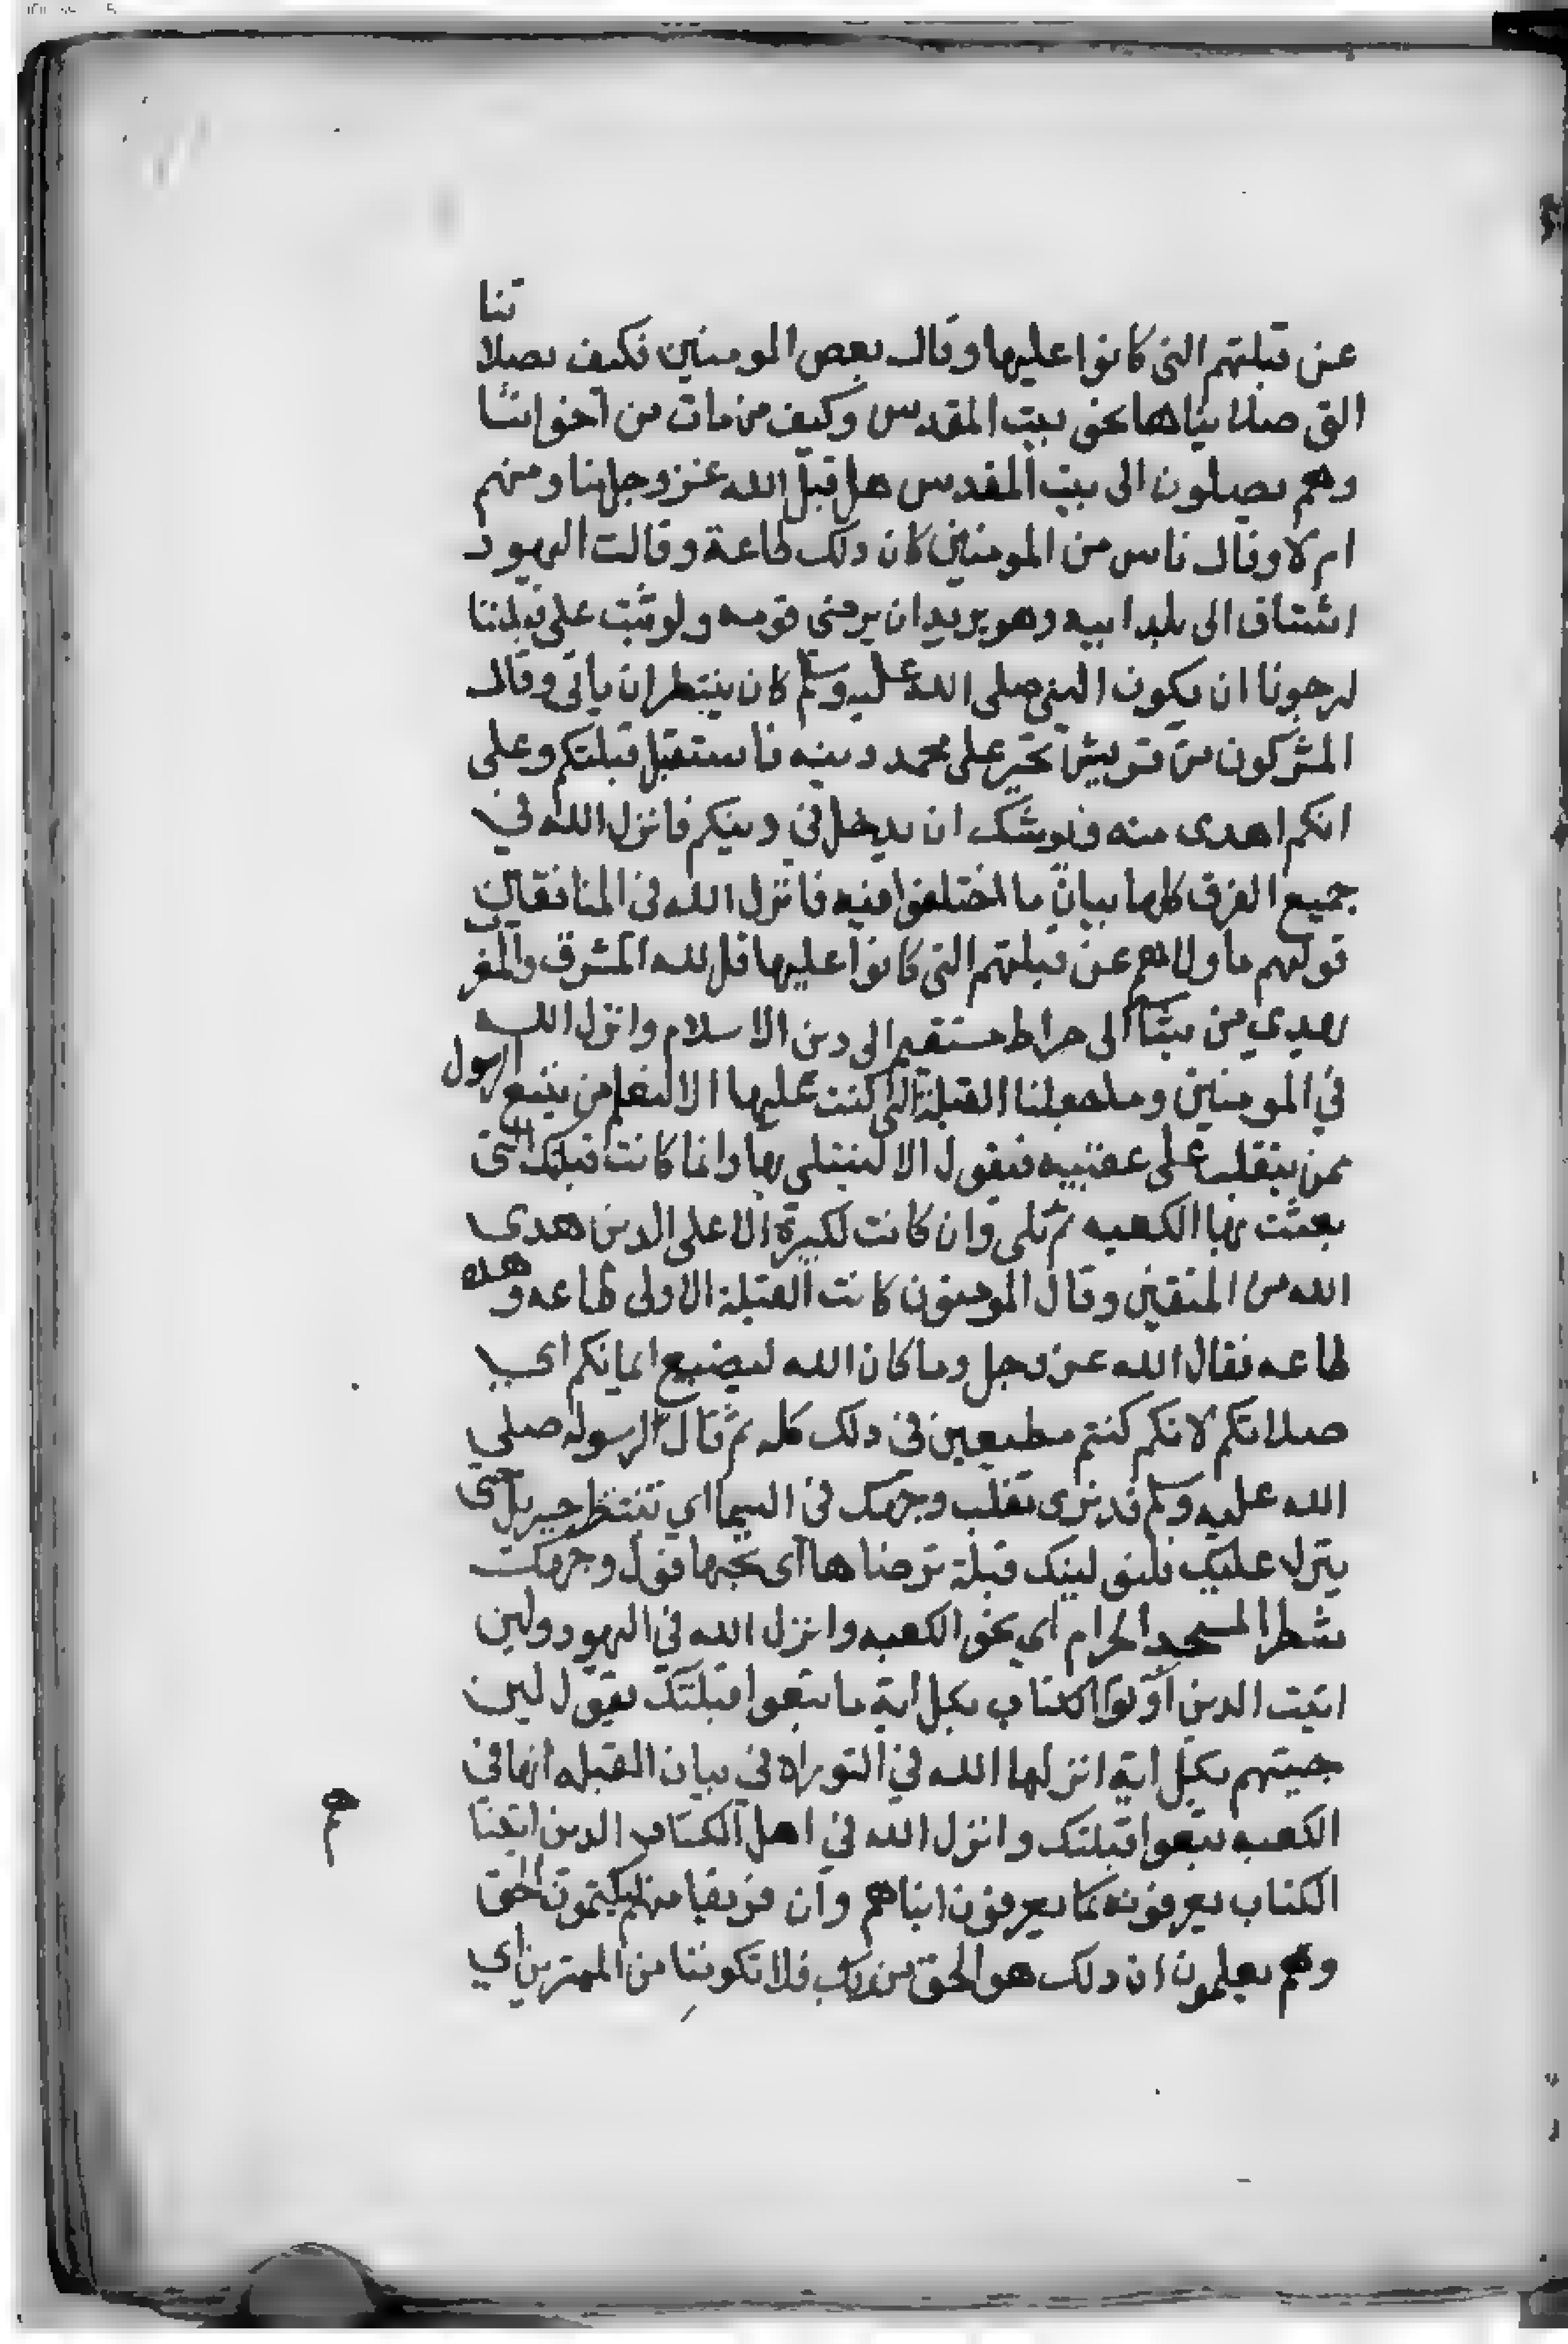 عن قبلتهم التى كانوا عليها وقال بعض المومنين فكيف بصلاتنا
التى صلاىناها نحو بيت المقدس وكيف من مات من اخواننا
وهم يصلون الى بيت المقدس هل قبل الله عز وجل منا ومنهم
ام لا وقال ناس من المومنين كان دلك طاعة وقالت اليهود
اشتاق الى بلد ابيه وهو يريد ان يرضى قومه ولو ثبت على قبلتنا
لرجونا ان يكون النبى صلى الله عليه وسلم كان ينتظر ان ياتى وقال
المشركون من قريش تحير على محمد دينه فاستقبل قبلتكم وعلى
انكم اهدى منه ويوشك ان يدخل في دينكم فانزل الله في
جميع الفرق كلها بيان ما اختلفوا فيه فانزل الله فى المنافقين
قولهم ما ولاهم عن قبلتهم التى كانوا عليها قل لله المشرق والمغر
يهدي من يشآ الى صراط مستقيم الى دين الاسلام وانزل الله
في المومنين وما جعلنا القبلة التى كنت عليها الا لنعلم من يتبع الرسول
ممن ينقلب على عقبيه فيقول الا لنبتلي بها وانما كانت قبلتك التى
بعثت بها الكعبه ثم تلى وان كانت لكبيرة الا على الدين هدى
الله من المتقين وقال المومنون كانت القبلة الاولى طاعه وهده
طاعه فقال الله عز وجل وما كان الله ليضيع ايمانكم اي
صلاتكم لانكم كنتم مطيعين فى دلك كله ثم قال لرسوله صلي
الله عليه وسلم قد نرى تقلب وجهك فى السما اي تنتظر جبريل حتى
ينزل عليك فلنولينك قبلة ترضاها اى تحبها فول وجهك
شطر المسجد الحرام اي نحو الكعبه وانزل الله في اليهود ولين
اتيت الدين اوتوا الكتاب بكل اية ما تبعوا قبلتك يقول لين
جيتهم بكل اية انزلها الله في التوراه في بيان القبله انها في
الكعبه ما تبعوا قبلتك وانزل الله في اهل الكتاب الدين اتينا
الكتاب يعرفونه كما يعرفون ابناهم وان فريقا منهم ليكتمون الحق
وهم يعلمون ان دلك هو الحق من ربك فلا تكوننا من الممترين اي